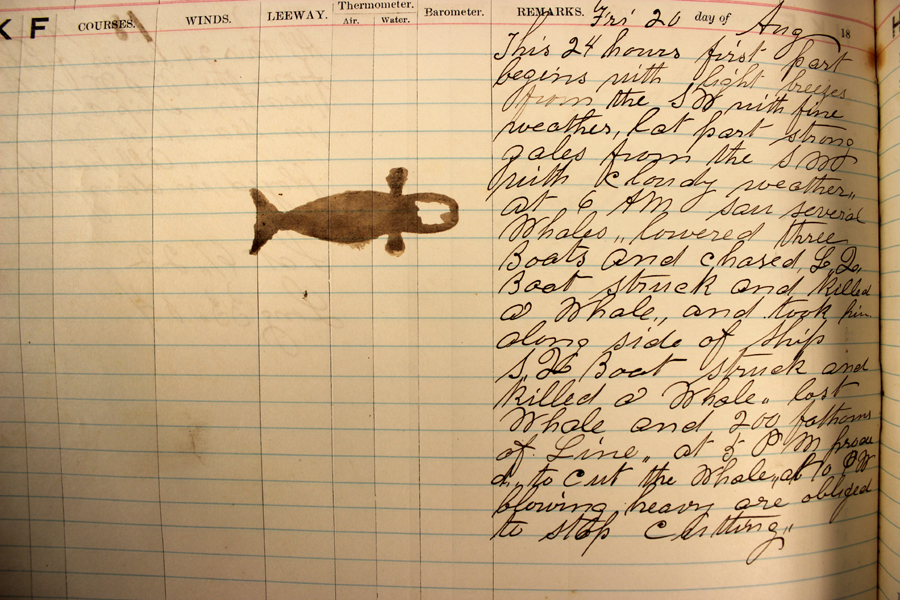 K F
COURSES. WINDS. LEEWAY. Thermometer. Air. Water. Barometer. REMARKS. Fri 20 day of Aug 18
This 24 hours first part
begins with light breezes
from the SW with fine
weather, lat part strong
gales from the SW
with cloudy weather,,
at 6 AM saw several
Whales,, lowered three
Boats and chased,
Boat struck and killed
a Whale,, and took him
along side of Ship
Boat struck and
killed a Whale,, lost
Whale and 200 fathoms
of Line,, at 5 PM
to cut the Whale,, at 10 PM
blowing heavy are obliged
to stop cutting,,